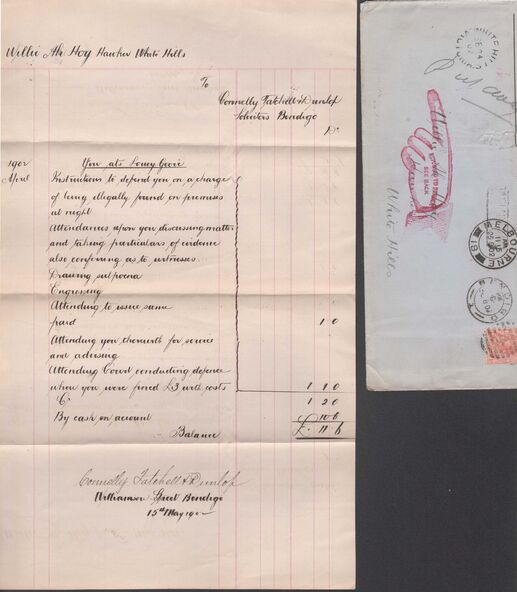 Willie Ah Hoy Hawker White Hills
To
Connelly Tatchell & Dunlop
Solicitors Bendigo
Dr
1902
April
You ats Louey Georie
Instructions to defend you on a charge
of being illegally found on premises
at night
Attendances upon you discussing matter
and taking particulars of evidence
also conferring as to witnesses
Drawing subpoena
Engrossing
Attending to issue same
paid 1 0
Attending you therewith for service
and advising
Attending Court conducting defence
when you were fined £3 with costs 1 1 0
Cr 1 2 0
By cash on account 10 6
Balance £ 11 6
Connelly Tatchell & Dunlop
Williamson Street Bendigo
15th May 190
WHITE HILLS
VICTORIA
SEE BACK
White Hills
MELBOURNE
18
BENDIGO